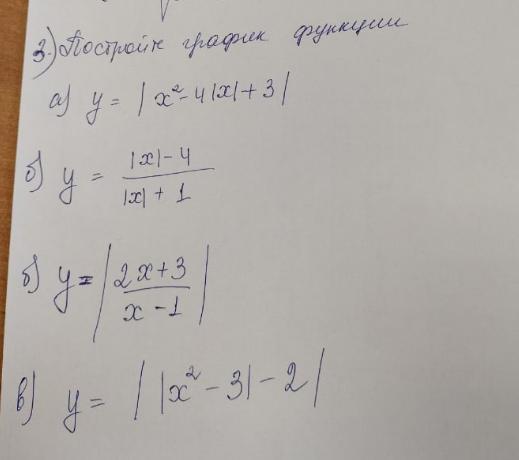 3.) Постройте график функции
а) y = |x²-4|x|+3|
б) y = (|x|-4)/(|x|+1)
б) y = |(2x+3)/(x-1)|
в) y = ||x²-3|-2|